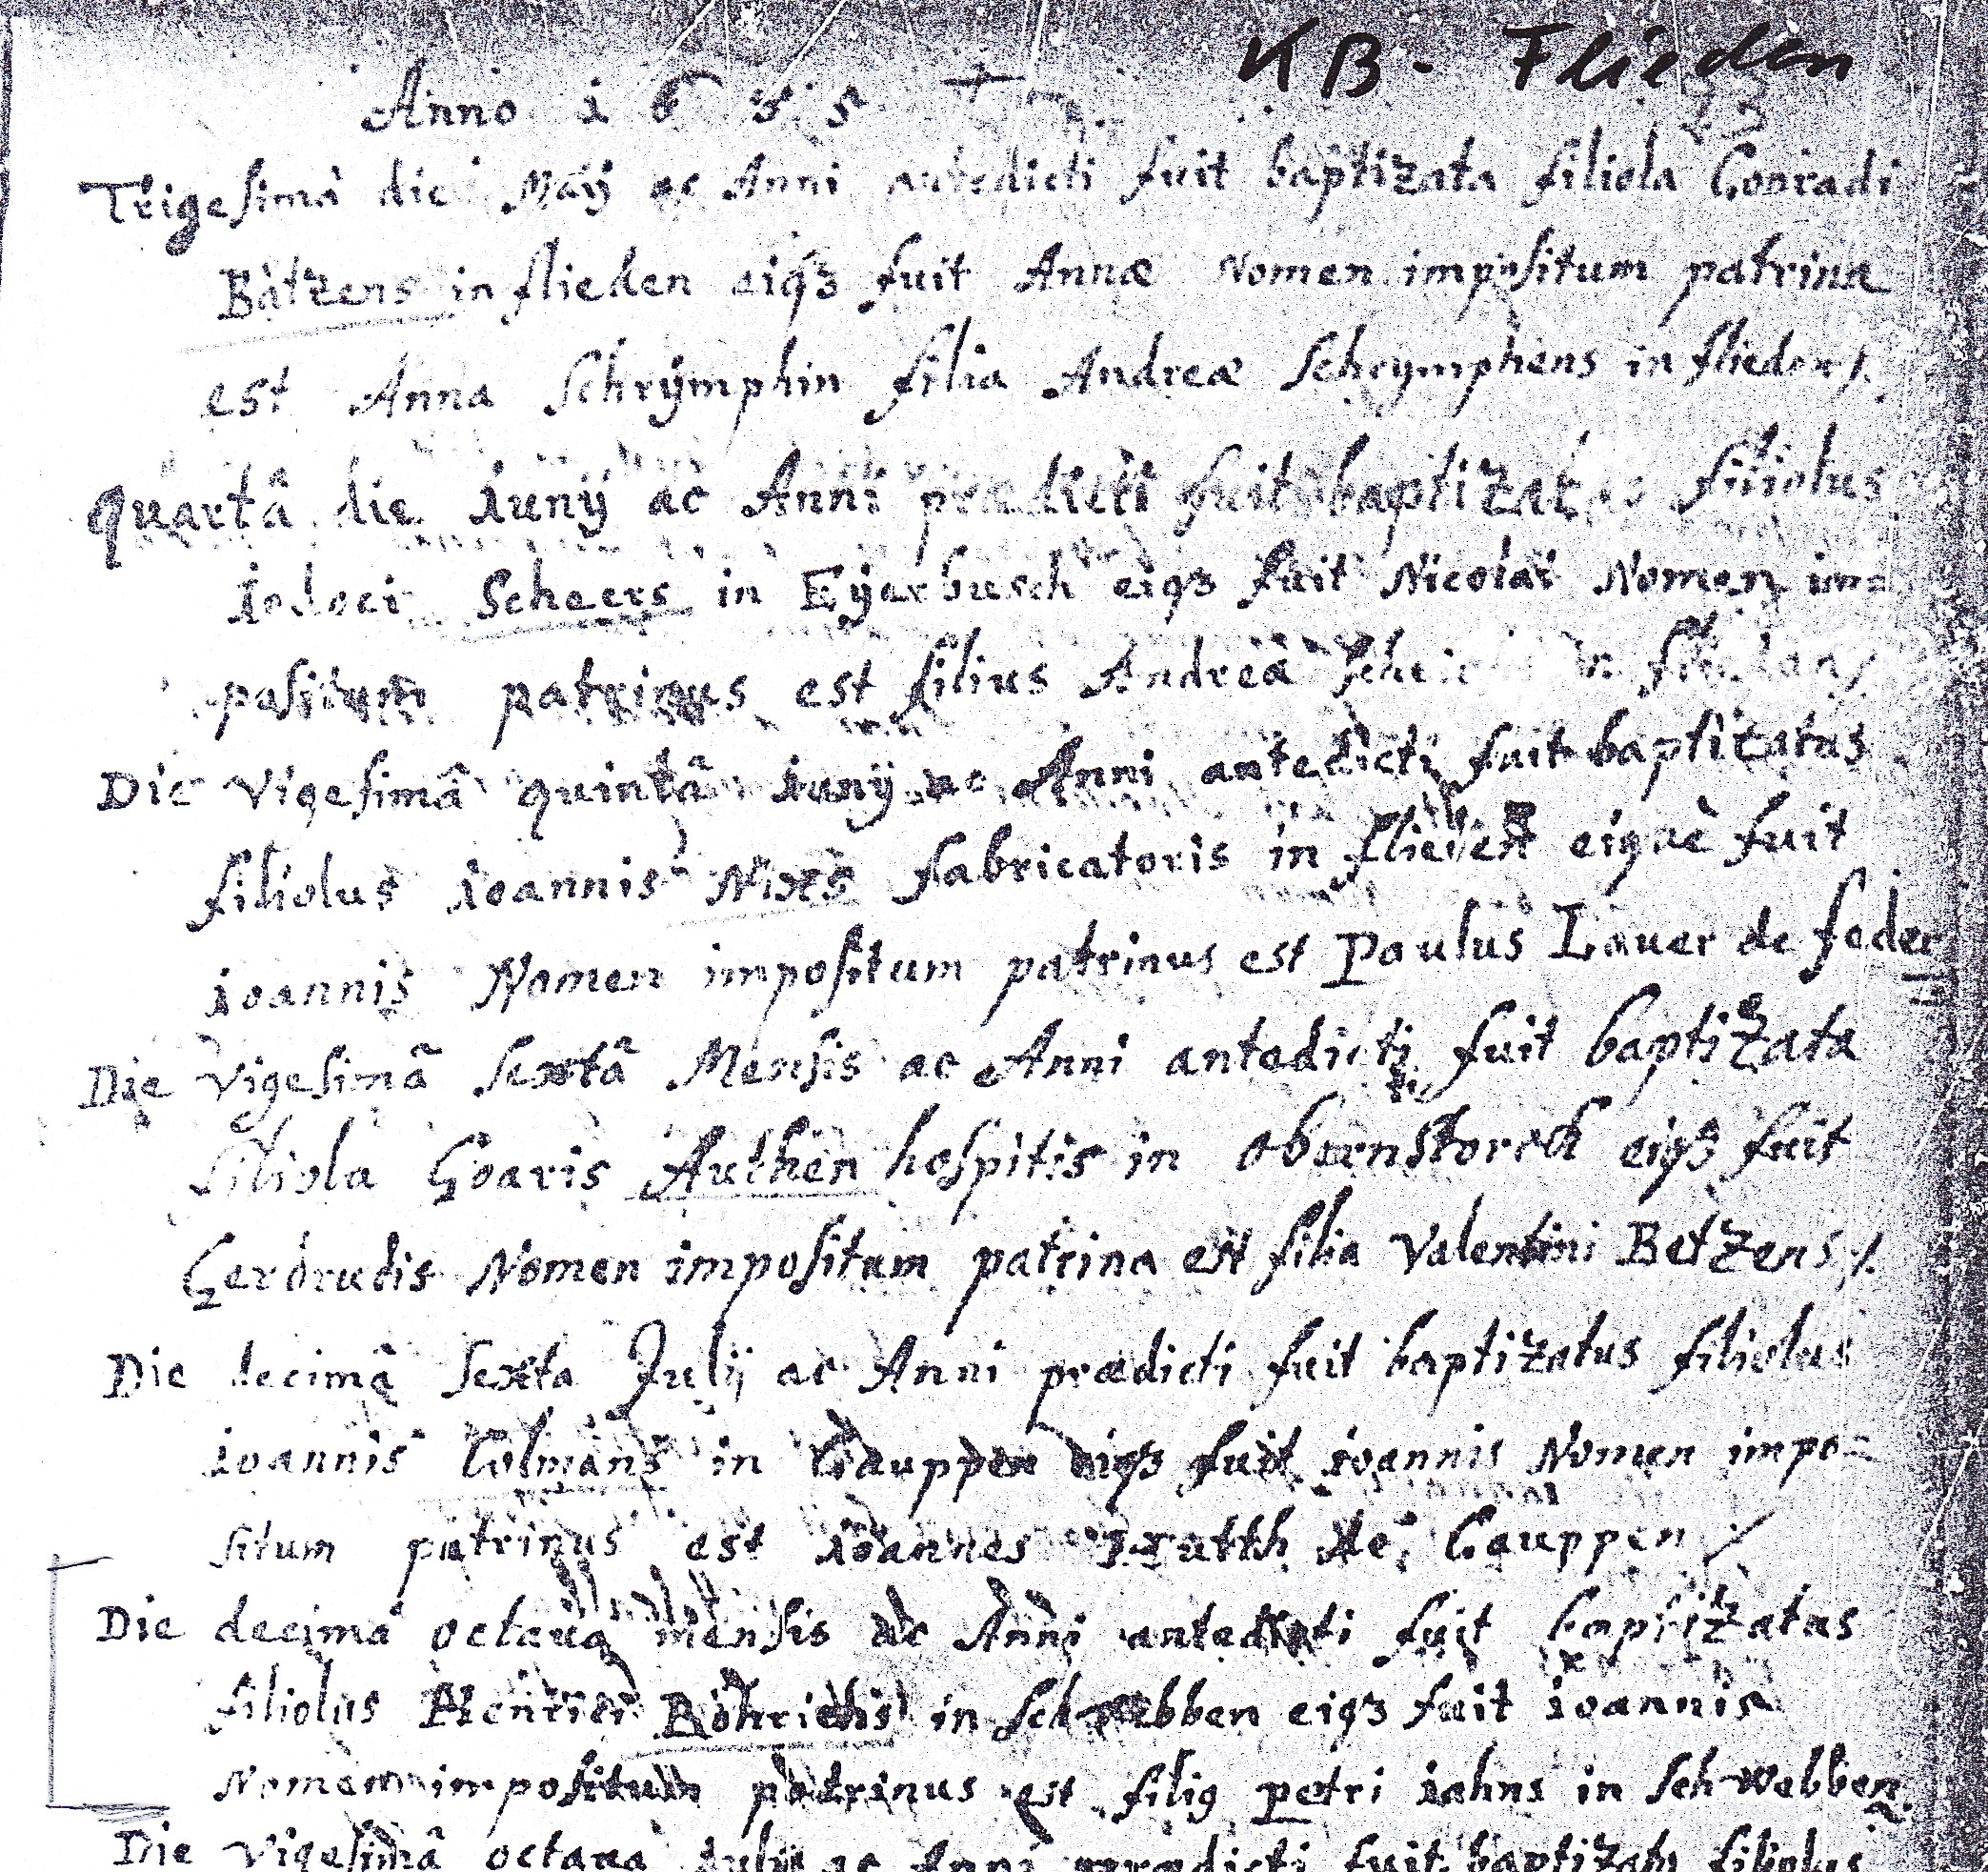 KB - Flieden
Anno 1655
Trigesimâ die Maij ac Anni antedicti fuit baptizata filiola Conradi
Bätzens in flieden eiqз fuit Annæ Nomen impositum patrina
est Anna Schrÿmphin filia Andreæ Schrymphens in flieden /.
quartâ die iunij ac Anni prædicti fuit baptizatus filiolus
iodoci Scheers in Eÿerbusch eiqз fuit Nicolai Nomen im=
positum patrinus est filius Andreä in
Die Vigesimâ quintâ iunij ac Anni antedicti fuit baptizatus
filiolus ioannis Nixs fabricatoris in flieden eiquè fuit
ioannis Nomen impositum patrinus est Paulus Lauer de feder
Die Vigesimâ sextâ Mensis ac Anni antedicti fuit baptizata
filiola Goaris Authen hospitis in obernstorck eiqз fuit
Gerdrudis Nomen impositum patrina est filia Valentini Betzens /.
Die decimâ sexta Julij ac Anni prædicti fuit baptizatus filiolus
ioannis Colmans in Cauppen eiqз fuit ioannis Nomen impo=
situm patrinus est ioannes de Cauppen /
Die decima octaua mensis ac Anni antedicti fuit baptizatus
filiolus Henrici Röhrichs in Schwebben eiqз fuit ioannis
Nomen impositum patrinus est filig petri iahns in Schwebben
Die Vigesimâ octaua iulij ac Anni prædicti fuit baptizatus filiolus